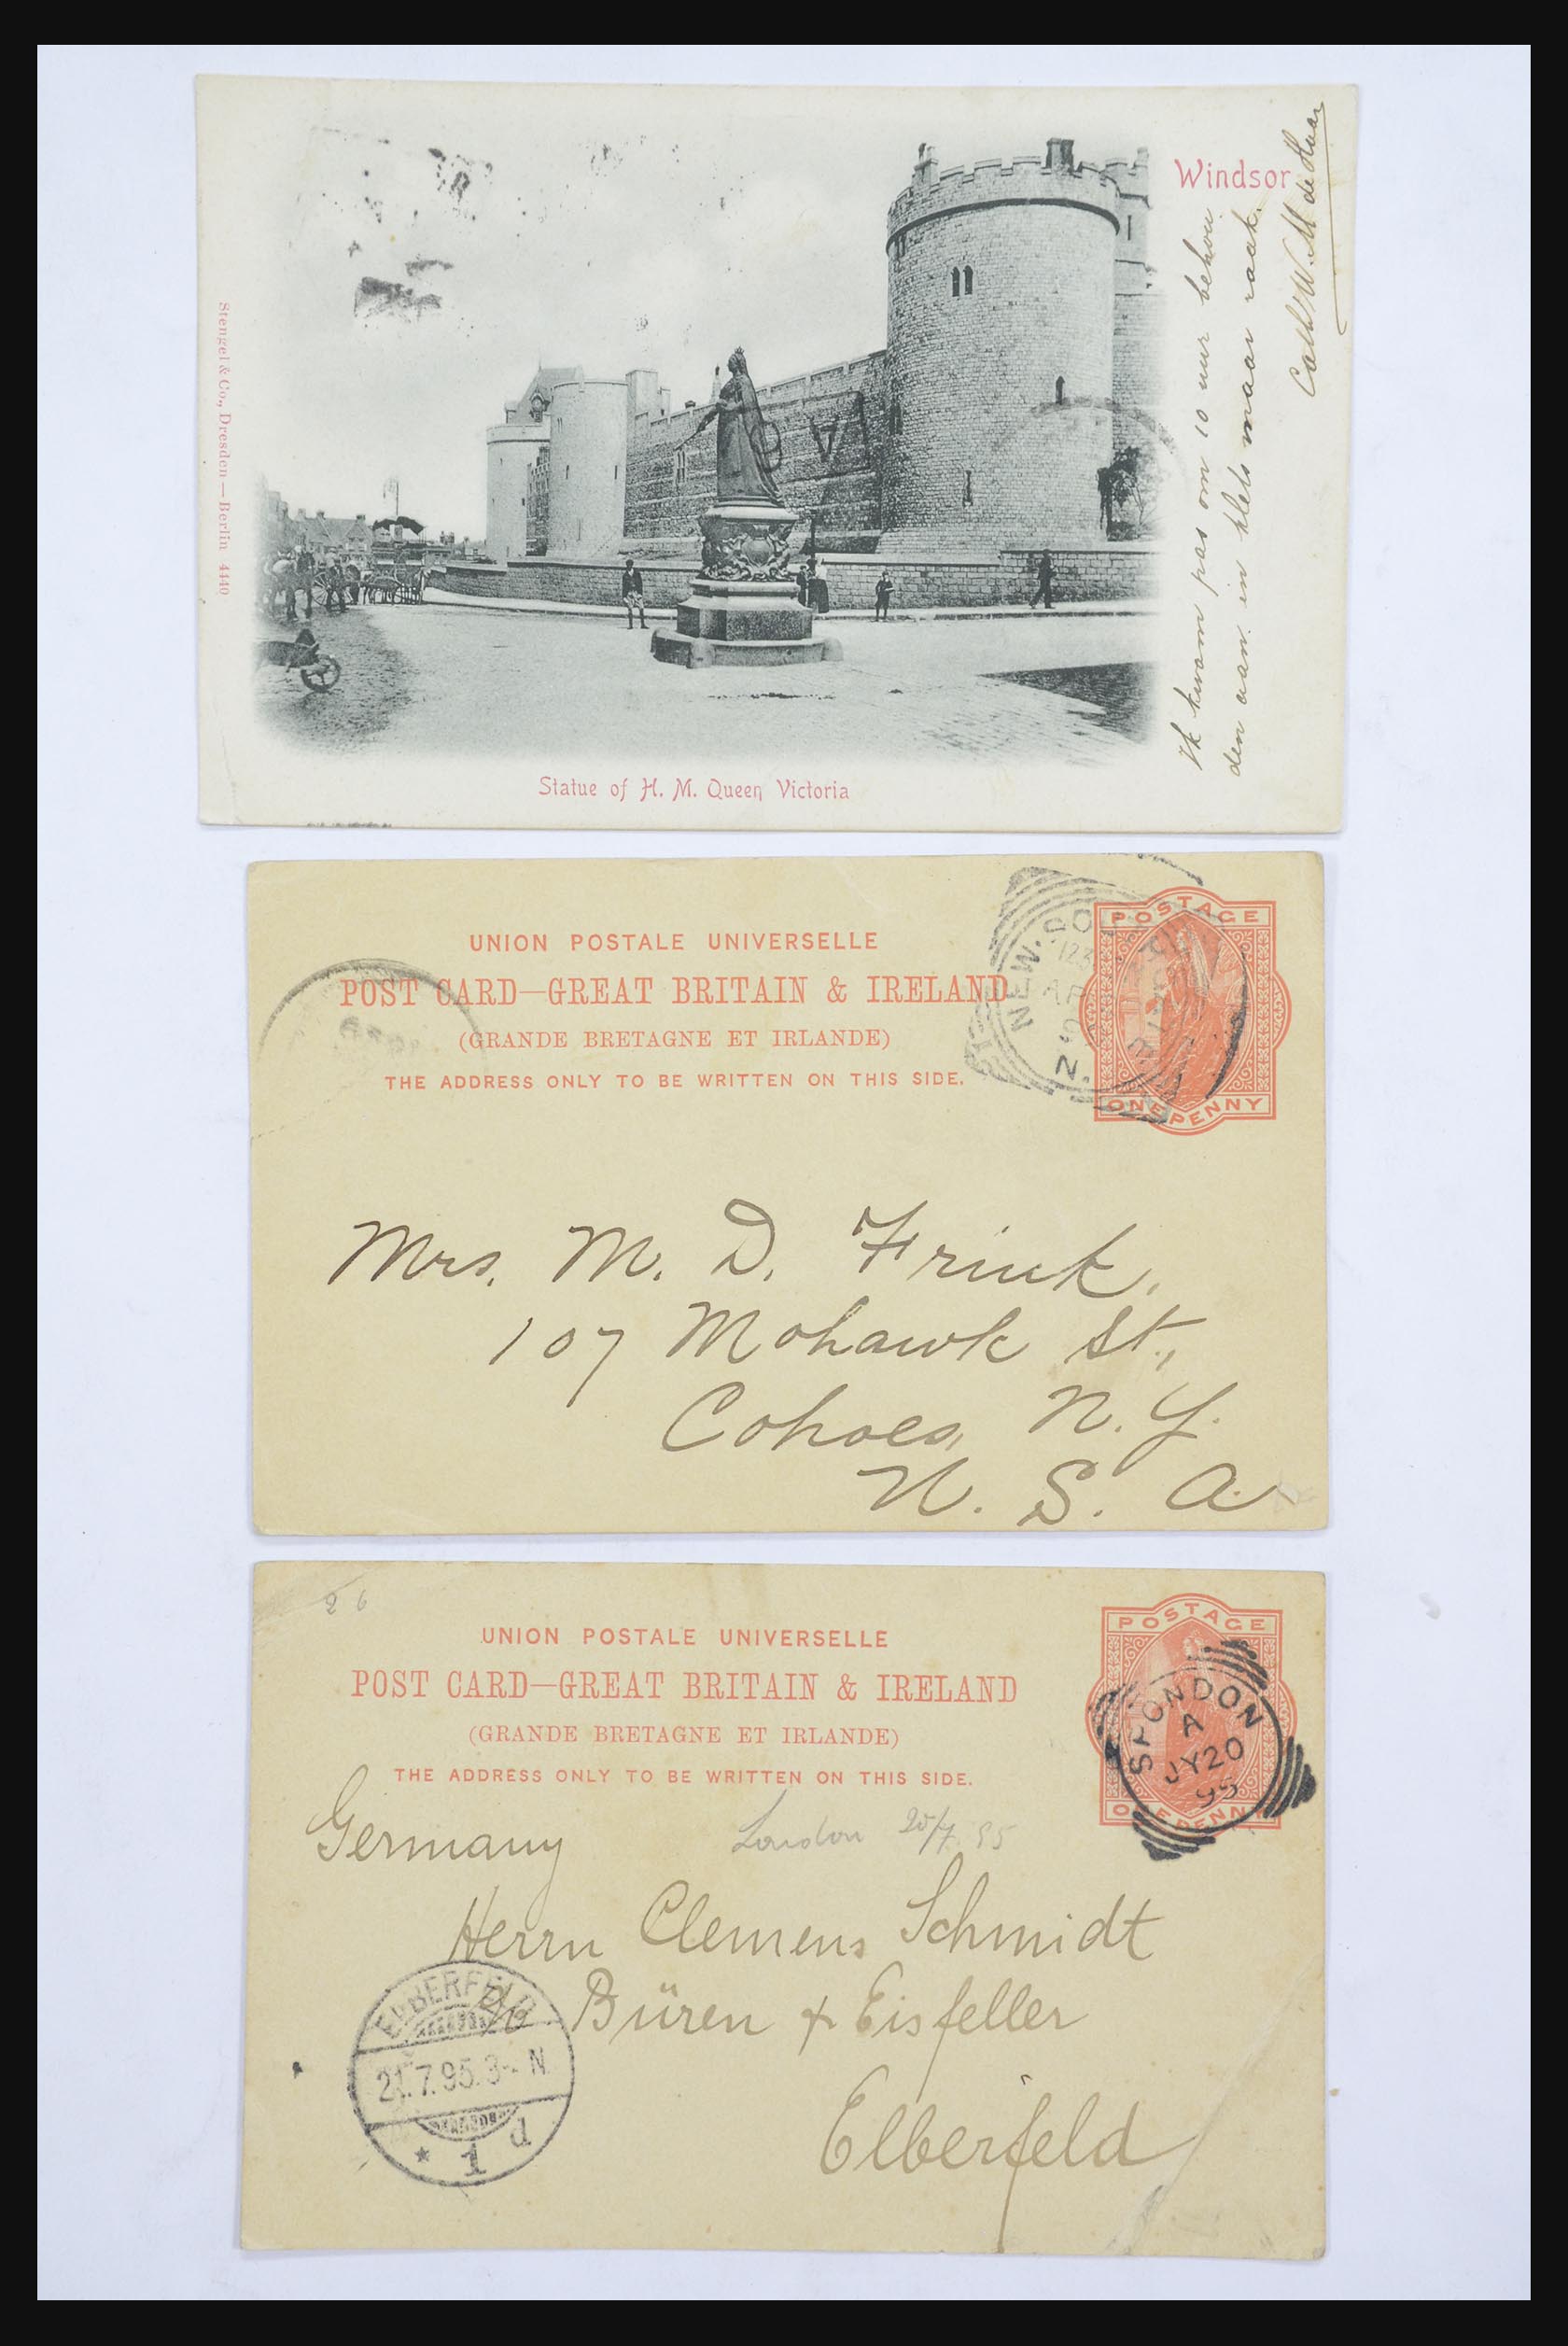 Windsor
Stengel & Co., Dresden—Berlin 4440
Ik kwam pas om 10 uur behou
den aan. in plets maar raak.
Cath. W. M de Haar
Statue of H. M. Queen Victoria
UNION POSTALE UNIVERSELLE
POST CARD—GREAT BRITAIN & IRELAND
(GRANDE BRETAGNE ET IRLANDE)
THE ADDRESS ONLY TO BE WRITTEN ON THIS SIDE.
POSTAGE
ONE PENNY
NEW.
123
AP
N.
Mrs. M. D. Frink.
107 Mohawk St.,
Cohoes, N. Y.
U. S. A.
26
UNION POSTALE UNIVERSELLE
POST CARD—GREAT BRITAIN & IRELAND
(GRANDE BRETAGNE ET IRLANDE)
THE ADDRESS ONLY TO BE WRITTEN ON THIS SIDE.
POSTAGE
ONE PENNY
SPONDON
A
JY20
95
Germany
London 20/7. 95
Herrn Clemens Schmidt
p/a Büren & Eisfeller
Elberfeld
ELBERFELD
21.7.95.3-. N
* 1 d